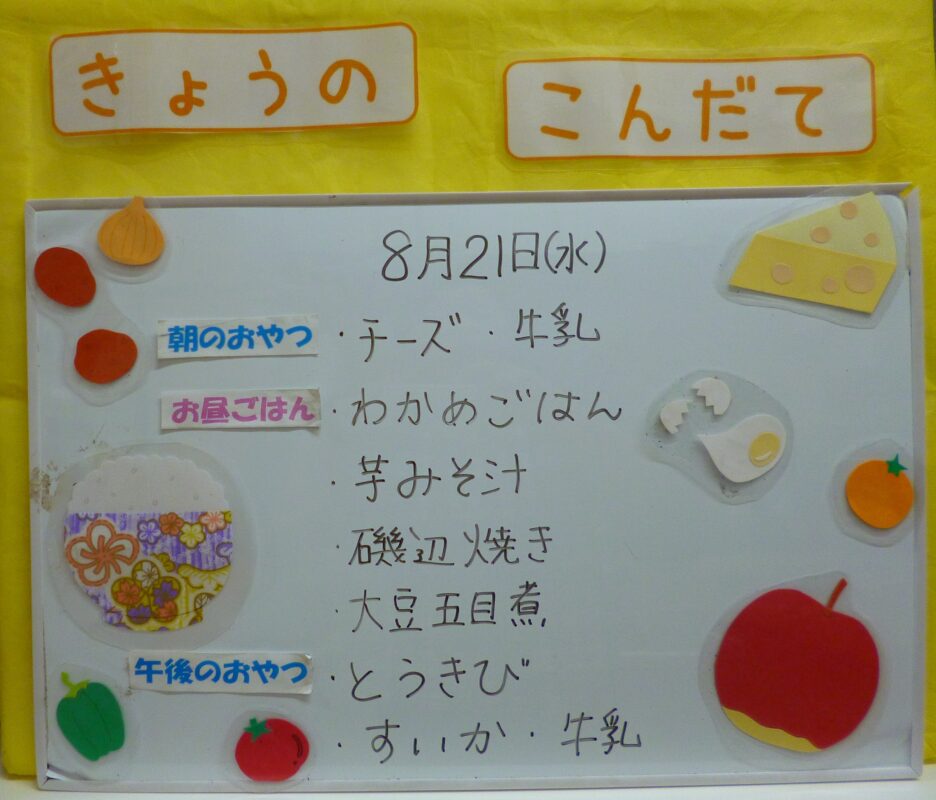 きょうの こんだて
8月21日(水)
朝のおやつ ・チーズ・牛乳
お昼ごはん ・わかめごはん
・芋みそ汁
・磯辺焼き
・大豆五目煮
午後のおやつ ・とうきび
・すいか・牛乳